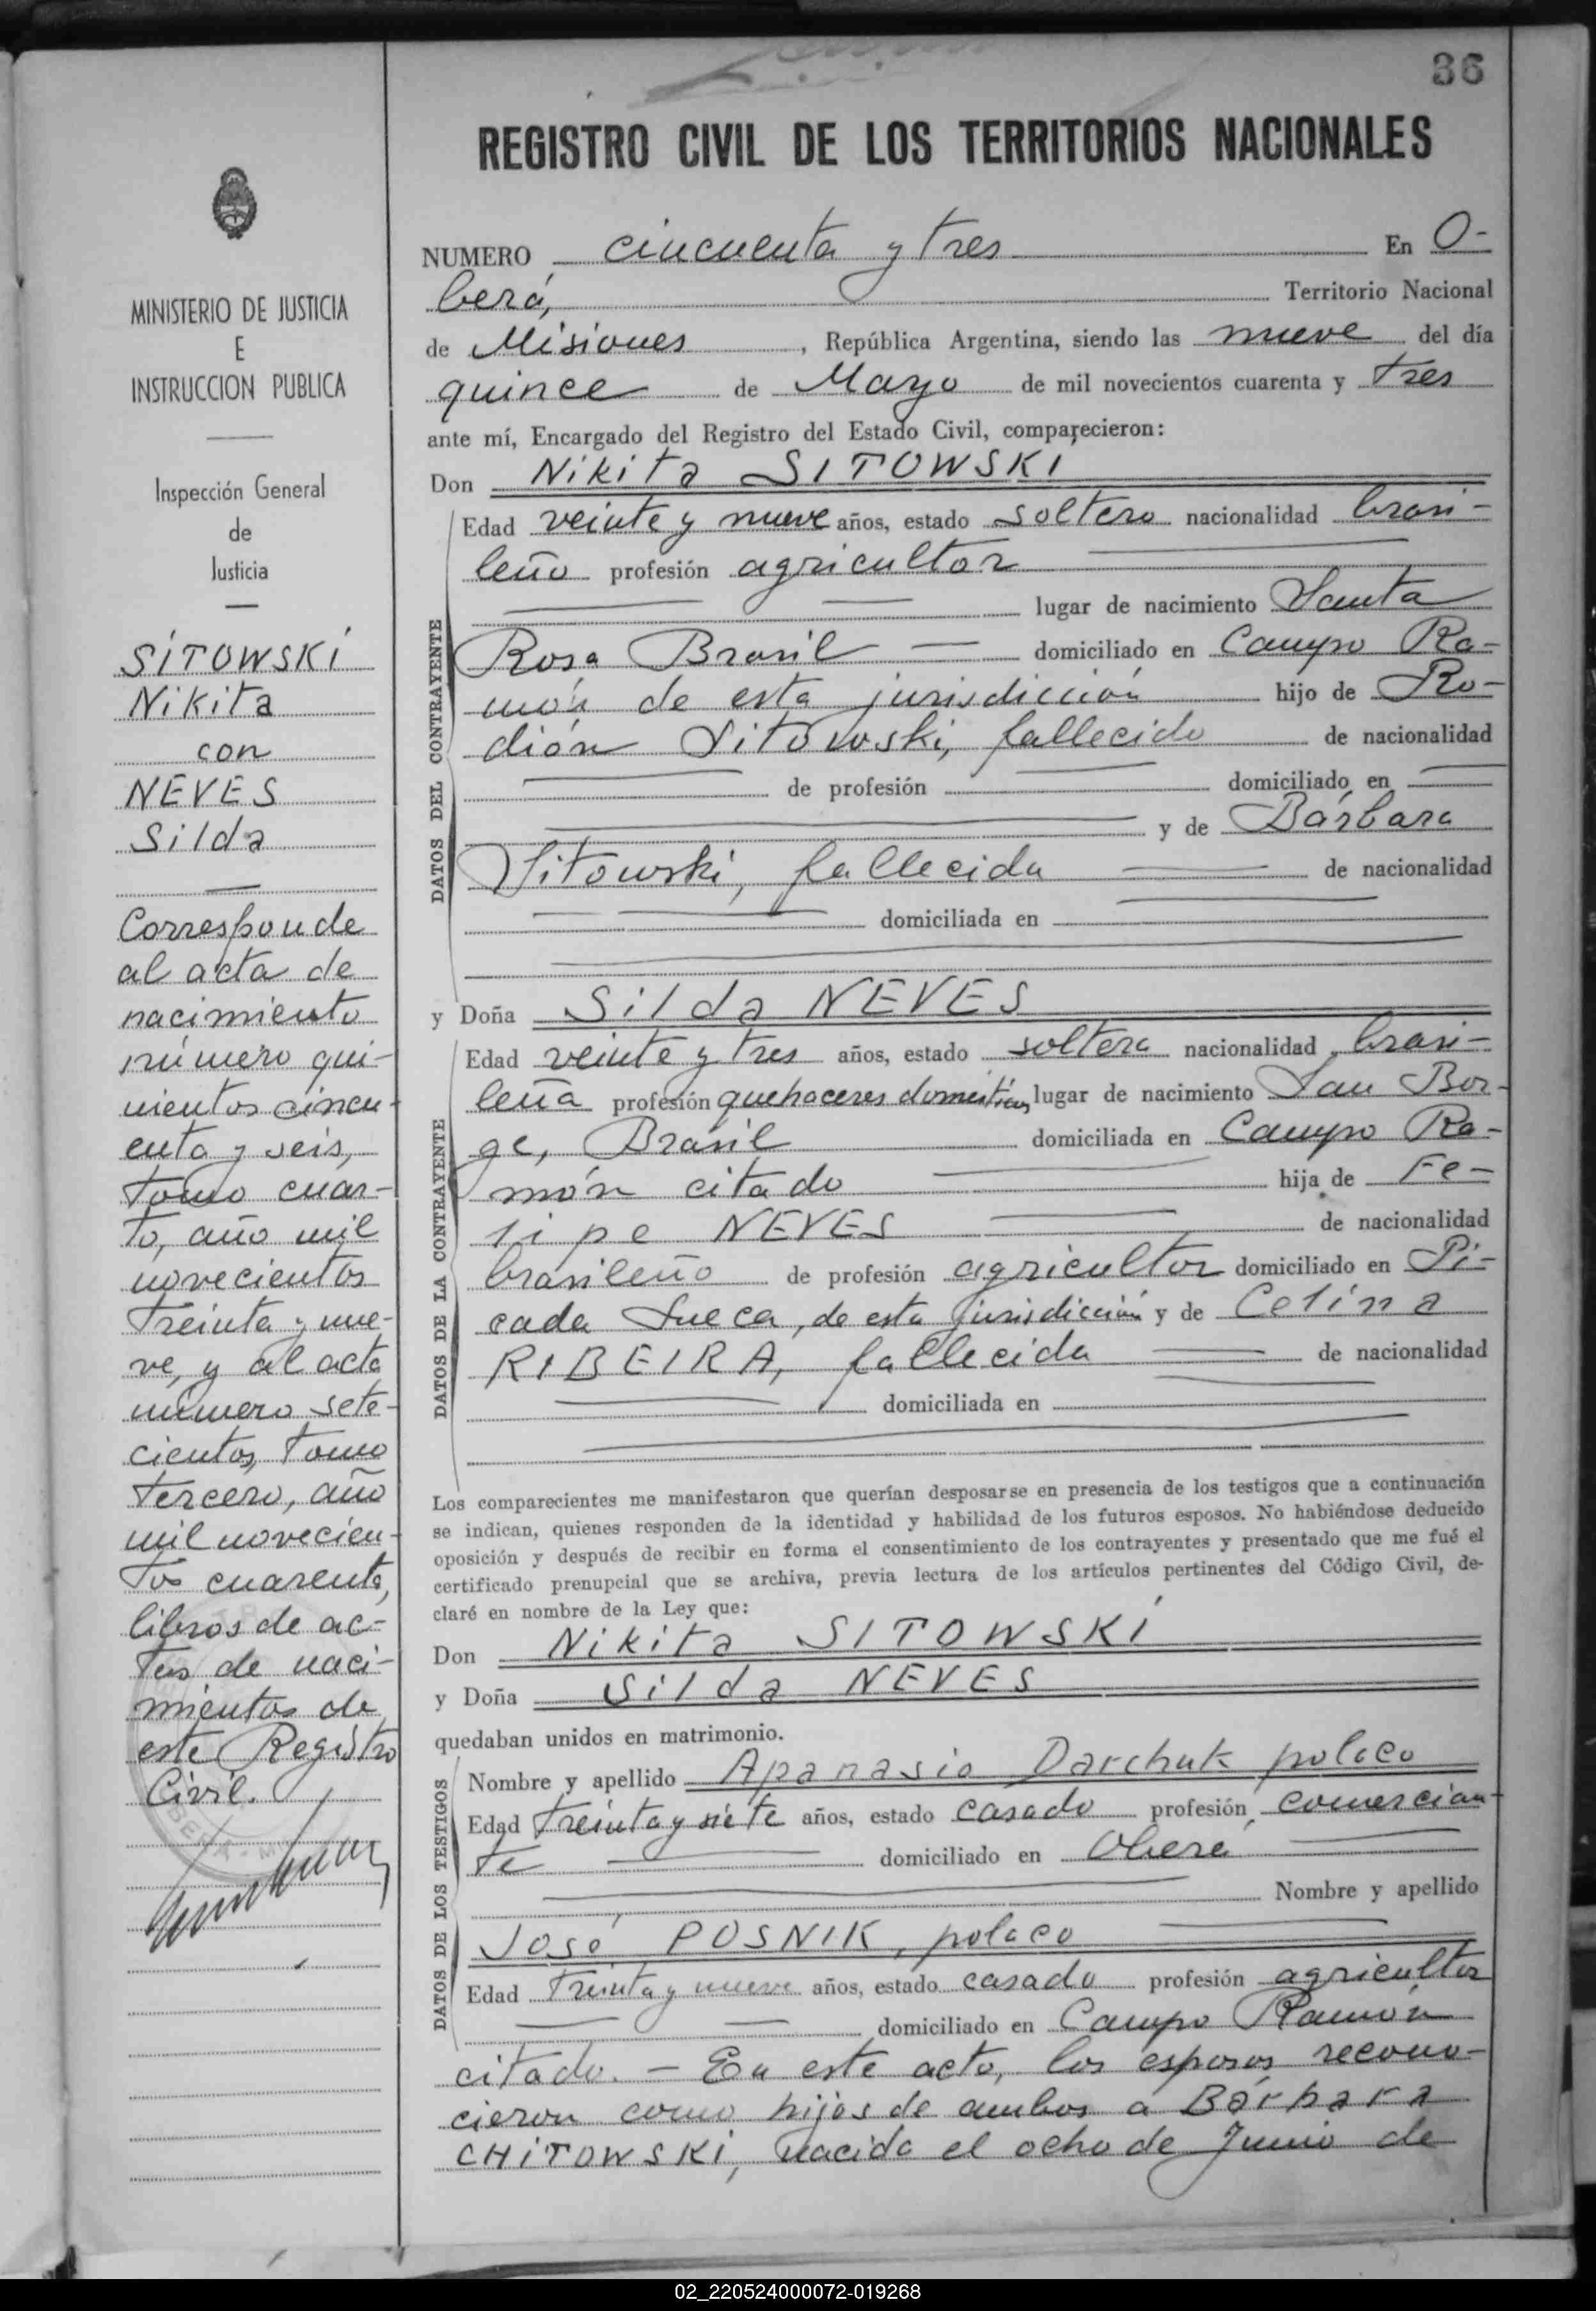 36
REGISTRO CIVIL DE LOS TERRITORIOS NACIONALES
MINISTERIO DE JUSTICIA
E
INSTRUCCION PUBLICA
Inspección General
de
Justicia
SITOWSKI
Nikita
con
NEVES
Silda
Corresponde
al acta de
nacimiento
número qui-
nientos cincu-
enta y seis,
tomo cuar-
to, año mil
novecientos
treinta y nue-
ve, y al acta
número sete-
cientos, tomo
tercero, año
mil novecien-
tos cuarenta,
libros de ac-
tas de naci-
mientos de
este Registro
Civil.
NUMERO cincuenta y tres En O-
berá, Territorio Nacional
de Misiones, República Argentina, siendo las nueve del día
quince de Mayo de mil novecientos cuarenta y tres
ante mí, Encargado del Registro del Estado Civil, comparecieron:
Don Nikita SITOWSKI
DATOS DEL CONTRAYENTE
Edad veinte y nueve años, estado soltero nacionalidad brasi-
leño profesión agricultor
lugar de nacimiento Santa
Rosa Brasil — domiciliado en Campo Ra-
món de esta jurisdicción hijo de Ro-
dión Sitowski, fallecido de nacionalidad
de profesión domiciliado en
y de Bárbara
Sitowski, fallecida de nacionalidad
domiciliada en
y Doña Silda NEVES
DATOS DE LA CONTRAYENTE
Edad veinte y tres años, estado soltera nacionalidad brasi-
leña profesión quehaceres domésticos lugar de nacimiento San Bor-
ge, Brasil domiciliada en Campo Ra-
món citado hija de Fe-
lipe NEVES de nacionalidad
brasileño de profesión agricultor domiciliado en Pi-
cada Sueca, de esta jurisdicción y de Celina
RIBEIRA, fallecida de nacionalidad
domiciliada en
Los comparecientes me manifestaron que querían desposarse en presencia de los testigos que a continuación
se indican, quienes responden de la identidad y habilidad de los futuros esposos. No habiéndose deducido
oposición y después de recibir en forma el consentimiento de los contrayentes y presentado que me fué el
certificado prenupcial que se archiva, previa lectura de los artículos pertinentes del Código Civil, de-
claré en nombre de la Ley que:
Don Nikita SITOWSKI
y Doña Silda NEVES
quedaban unidos en matrimonio.
DATOS DE LOS TESTIGOS
Nombre y apellido Apanasio Darchuk polaco
Edad treinta y siete años, estado casado profesión comercian-
te domiciliado en Oberá
Nombre y apellido
José POSNIK, polaco
Edad treinta y nueve años, estado casado profesión agricultor
domiciliado en Campo Ramón
citado. — En este acto, los esposos recono-
cieron como hijos de ambos a Bárbara
CHITOWSKI, nacida el ocho de Junio de
02_220524000072-019268